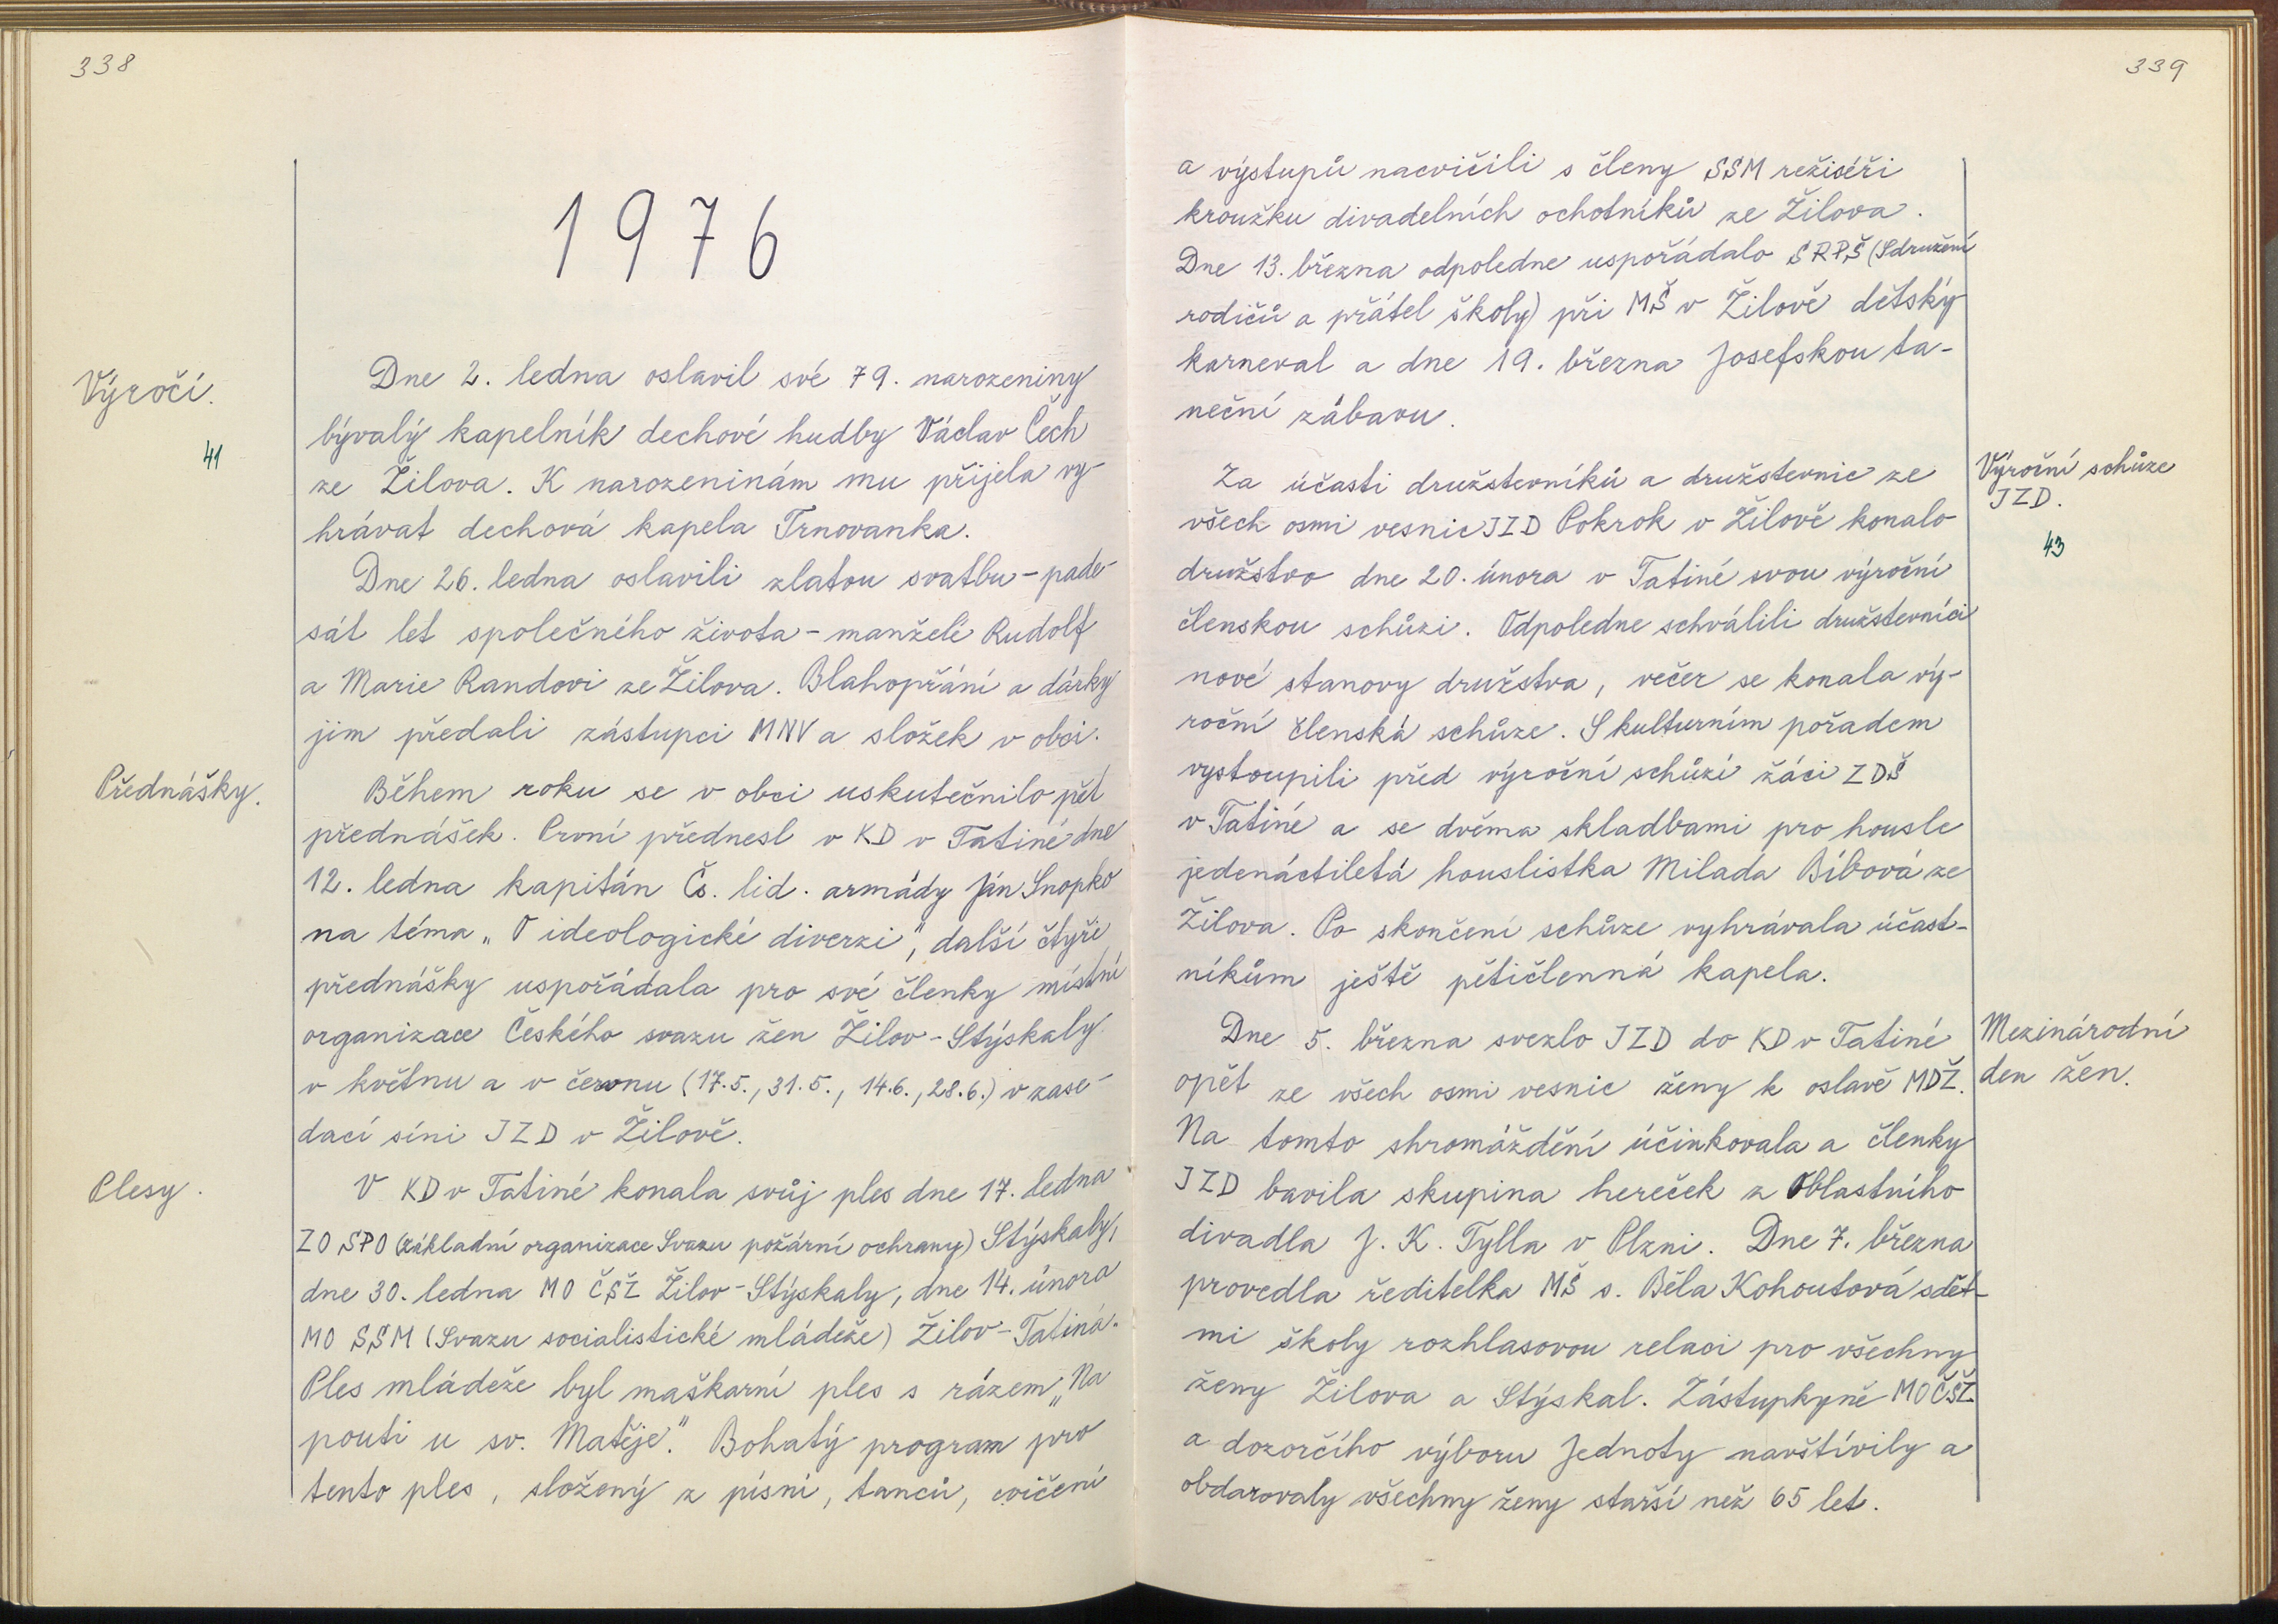 338
1976
Výročí.
41
Dne 2. ledna oslavil své 79. narozeniny
bývalý kapelník dechové hudby Václav Čech
ze Žilova. K narozeninám mu přijela vy-
hrávat dechová kapela Trnovanka.
Dne 26. ledna oslavili zlatou svatbu - pade-
sát let společného života - manželé Rudolf
a Marie Randovi ze Žilova. Blahopřání a dárky
jim předali zástupci MNV a složek v obci.
Přednášky.
Během roku se v obci uskutečnilo pět
přednášek. První přednesl v KD v Tatiné dne
12. ledna kapitán Čs. lid. armády Ján Snopko
na téma „O ideologické diverzi", další čtyři
přednášky uspořádala pro své členky místní
organizace Českého svazu žen Žilov - Stýskaly
v květnu a v červnu (17.5., 31.5., 14.6., 28.6.) v zase-
dací síni JZD v Žilově.
Plesy.
V KD v Tatiné konala svůj ples dne 17. ledna
ZO SPO (základní organizace Svazu požární ochrany) Stýskaly,
dne 30. ledna MO ČSŽ Žilov - Stýskaly, dne 14. února
MO SSM (Svazu socialistické mládeže) Žilov - Tatiná.
Ples mládeže byl maškarní ples s rázem „Na
pouti u sv. Matěje". Bohatý program pro
tento ples, složený z písní, tanců, cvičení
339
a výstupů nacvičili s členy SSM režiséři
kroužku divadelních ochotníků ze Žilova.
Dne 13. března odpoledne uspořádalo SRPŠ (Sdružení
rodičů a přátel školy) při MŠ v Žilově dětský
karneval a dne 19. března Josefskou ta-
neční zábavu.
Výroční schůze
JZD.
43
Za účasti družstevníků a družstevnic ze
všech osmi vesnic JZD Pokrok v Žilově konalo
družstvo dne 20. února v Tatiné svou výroční
členskou schůzi. Odpoledne schválili družstevníci
nové stanovy družstva, večer se konala vý-
roční členská schůze. S kulturním pořadem
vystoupili před výroční schůzí žáci ZDŠ
v Tatiné a se dvěma skladbami pro housle
jedenáctiletá houslistka Milada Bíbová ze
Žilova. Po skončení schůze vyhrávala účast-
níkům ještě pětičlenná kapela.
Mezinárodní
den žen.
Dne 5. března svezlo JZD do KD v Tatiné
opět ze všech osmi vesnic ženy k oslavě MDŽ.
Na tomto shromáždění účinkovala a členky
JZD bavila skupina hereček z Oblastního
divadla J. K. Tylla v Plzni. Dne 7. března
provedla ředitelka MŠ s. Běla Kohoutová s dět-
mi školy rozhlasovou relaci pro všechny
ženy Žilova a Stýskal. Zástupkyně MO ČSŽ
a dozorčího výboru Jednoty navštívily a
obdarovaly všechny ženy starší než 65 let.